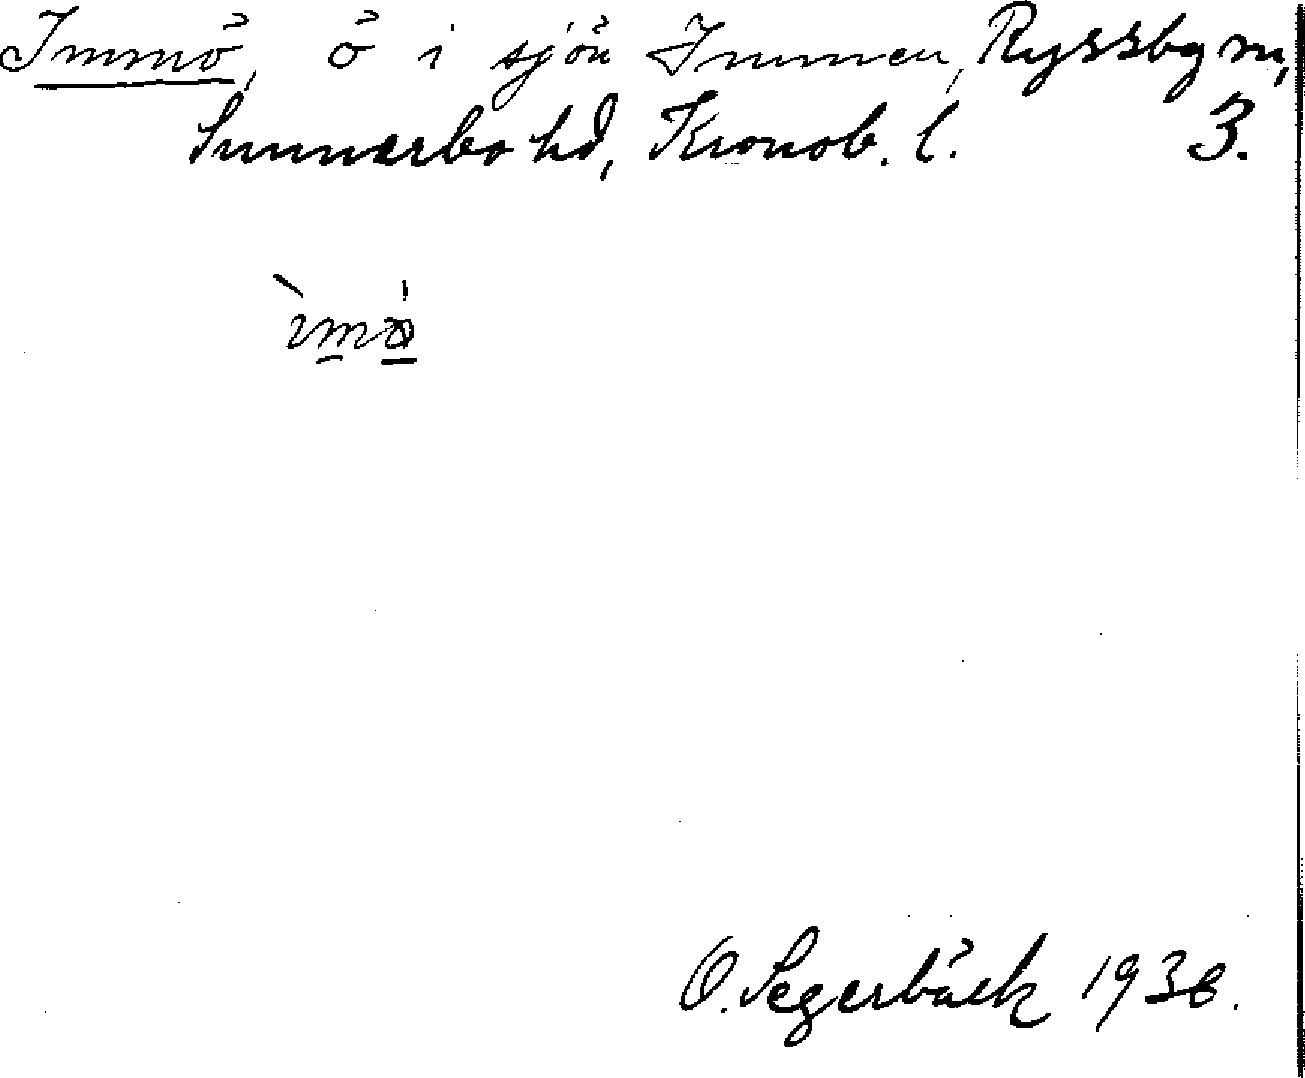 Immö, ö i sjön Immen, Ryssby sn,
Sunnerbo hd, Kronob. l. 3.
O. Segerbäck 1938.